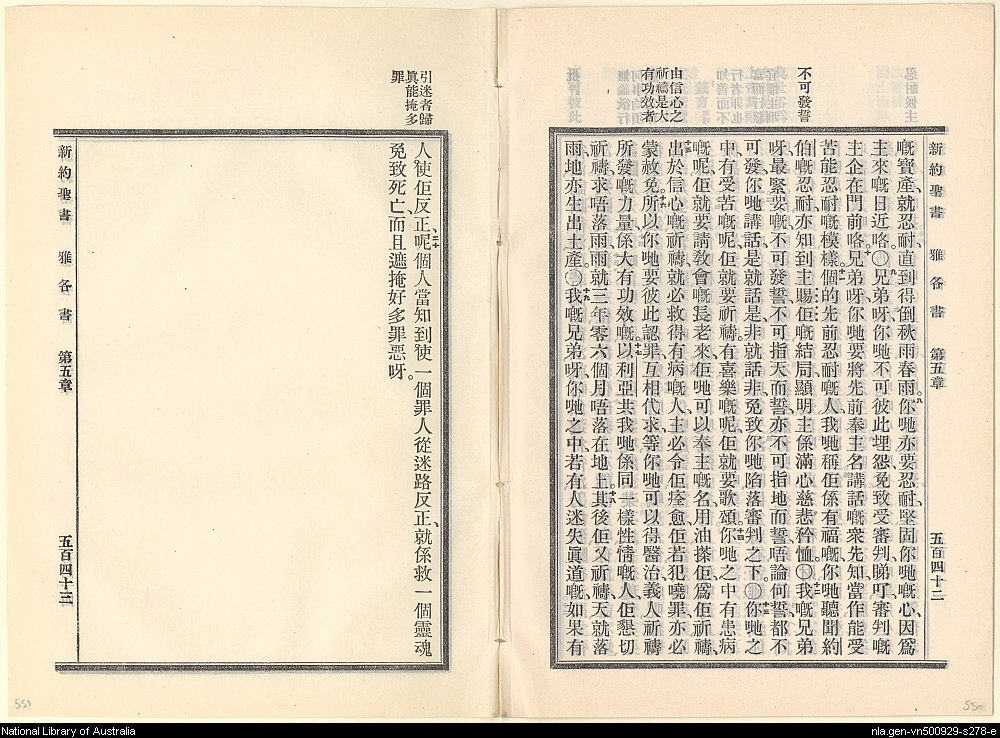 忍耐候主
不可發誓
由信心之
祈禱是大
有功效者
新約聖書 雅各書 第五章 五百四十二
嘅寶產、就忍耐、直到得倒秋雨春雨。八你哋亦要忍耐、堅固你哋嘅心、因爲
主來嘅日近咯。〇九兄弟呀、你哋不可彼此埋怨、免致受審判、睇吓審判嘅
主企在門前咯。十兄弟呀、你哋要將先前奉主名講話嘅衆先知、當作能受
苦能忍耐嘅模樣。十一個的先前忍耐嘅人、我哋稱佢係有福嘅、你哋聽聞約
伯嘅忍耐、亦知到主賜佢嘅結局、顯明主係滿心慈悲矜恤。〇十二我嘅兄弟
呀、最緊要嘅、不可發誓、不可指天而誓、亦不可指地而誓、唔論何誓、都不
可發、你哋講話、是就話是、非就話非、免致你哋陷落審判之下。〇十三你哋之
中、有受苦嘅呢、佢就要祈禱。有喜樂嘅呢、佢就要歌頌。十四你哋之中有患病
嘅呢、佢就要請敎會嘅長老來、佢哋可以奉主嘅名、用油搽佢、爲佢祈禱、
十五出於信心嘅祈禱、就必救得有病嘅人、主必令佢痊愈、佢若犯曉罪、亦必
蒙赦免。十六所以你哋要彼此認罪、互相代求、等你哋可以得醫治、義人祈禱
所發嘅力量、係大有功效嘅。十七以利亞共我哋係同一樣性情嘅人、佢懇切
祈禱、求唔落雨、雨就三年零六個月唔落在地上。十八其後佢又祈禱、天就落
雨、地亦生出土產。〇十九我嘅兄弟呀、你哋之中、若有人迷失眞道嘅、如果有
引迷者歸
眞能掩多
罪
人使佢反正呢、二十個人當知到使一個罪人從迷路反正、就係救一個靈魂
免致死亡、而且遮掩好多罪惡呀。
新約聖書 雅各書 第五章 五百四十三
551
550
National Library of Australia
nla.gen-vn500929-s278-e